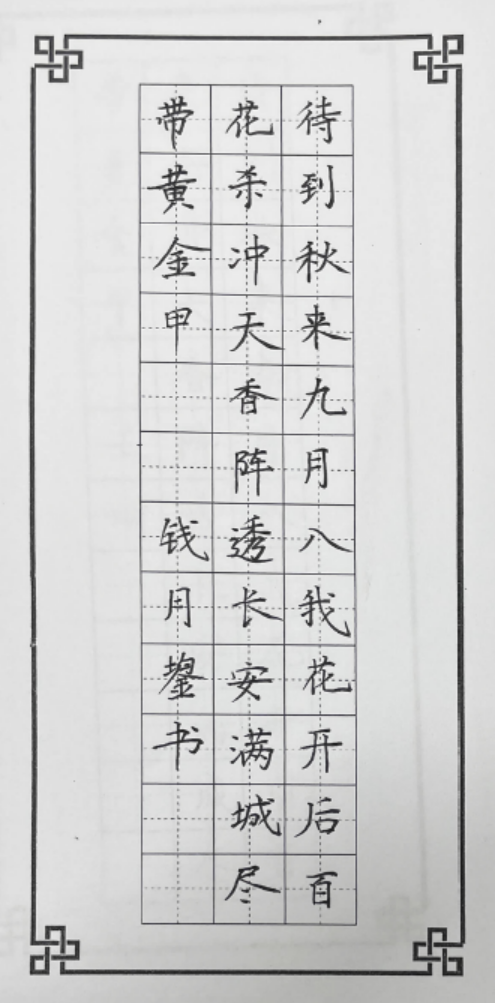 待到秋来九月八我花开后百
花杀冲天香阵透长安满城尽
带黄金甲
钱月鋆书